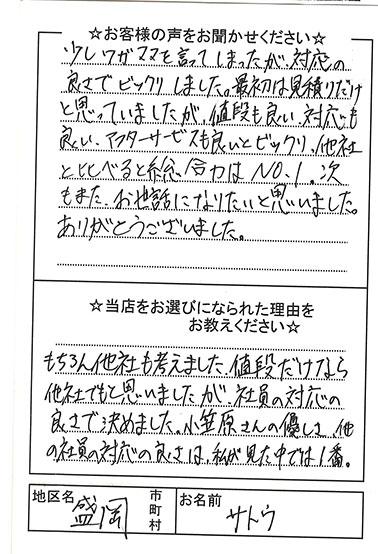 ☆お客様の声をお聞かせください☆
少しワガママを言ってしまったが、対応の
良さでビックリしました。最初は見積りだけ
と思っていましたが、値段も良い、対応も
良い、アフターサービスも良いとビックリ、他社
と比べると総合力はNO.1。次
もまた、お世話になりたいと思いました。
ありがとうございました。
☆当店をお選びになられた理由を
お教えください☆
もちろん他社も考えました、値段だけなら
他社でもと思いましたが、社員の対応の
良さで決めました。小笠原さんの優しさ、他
の社員の対応の良さは、私が見た中では1番。
地区名 盛岡 市町村 お名前 サトウ